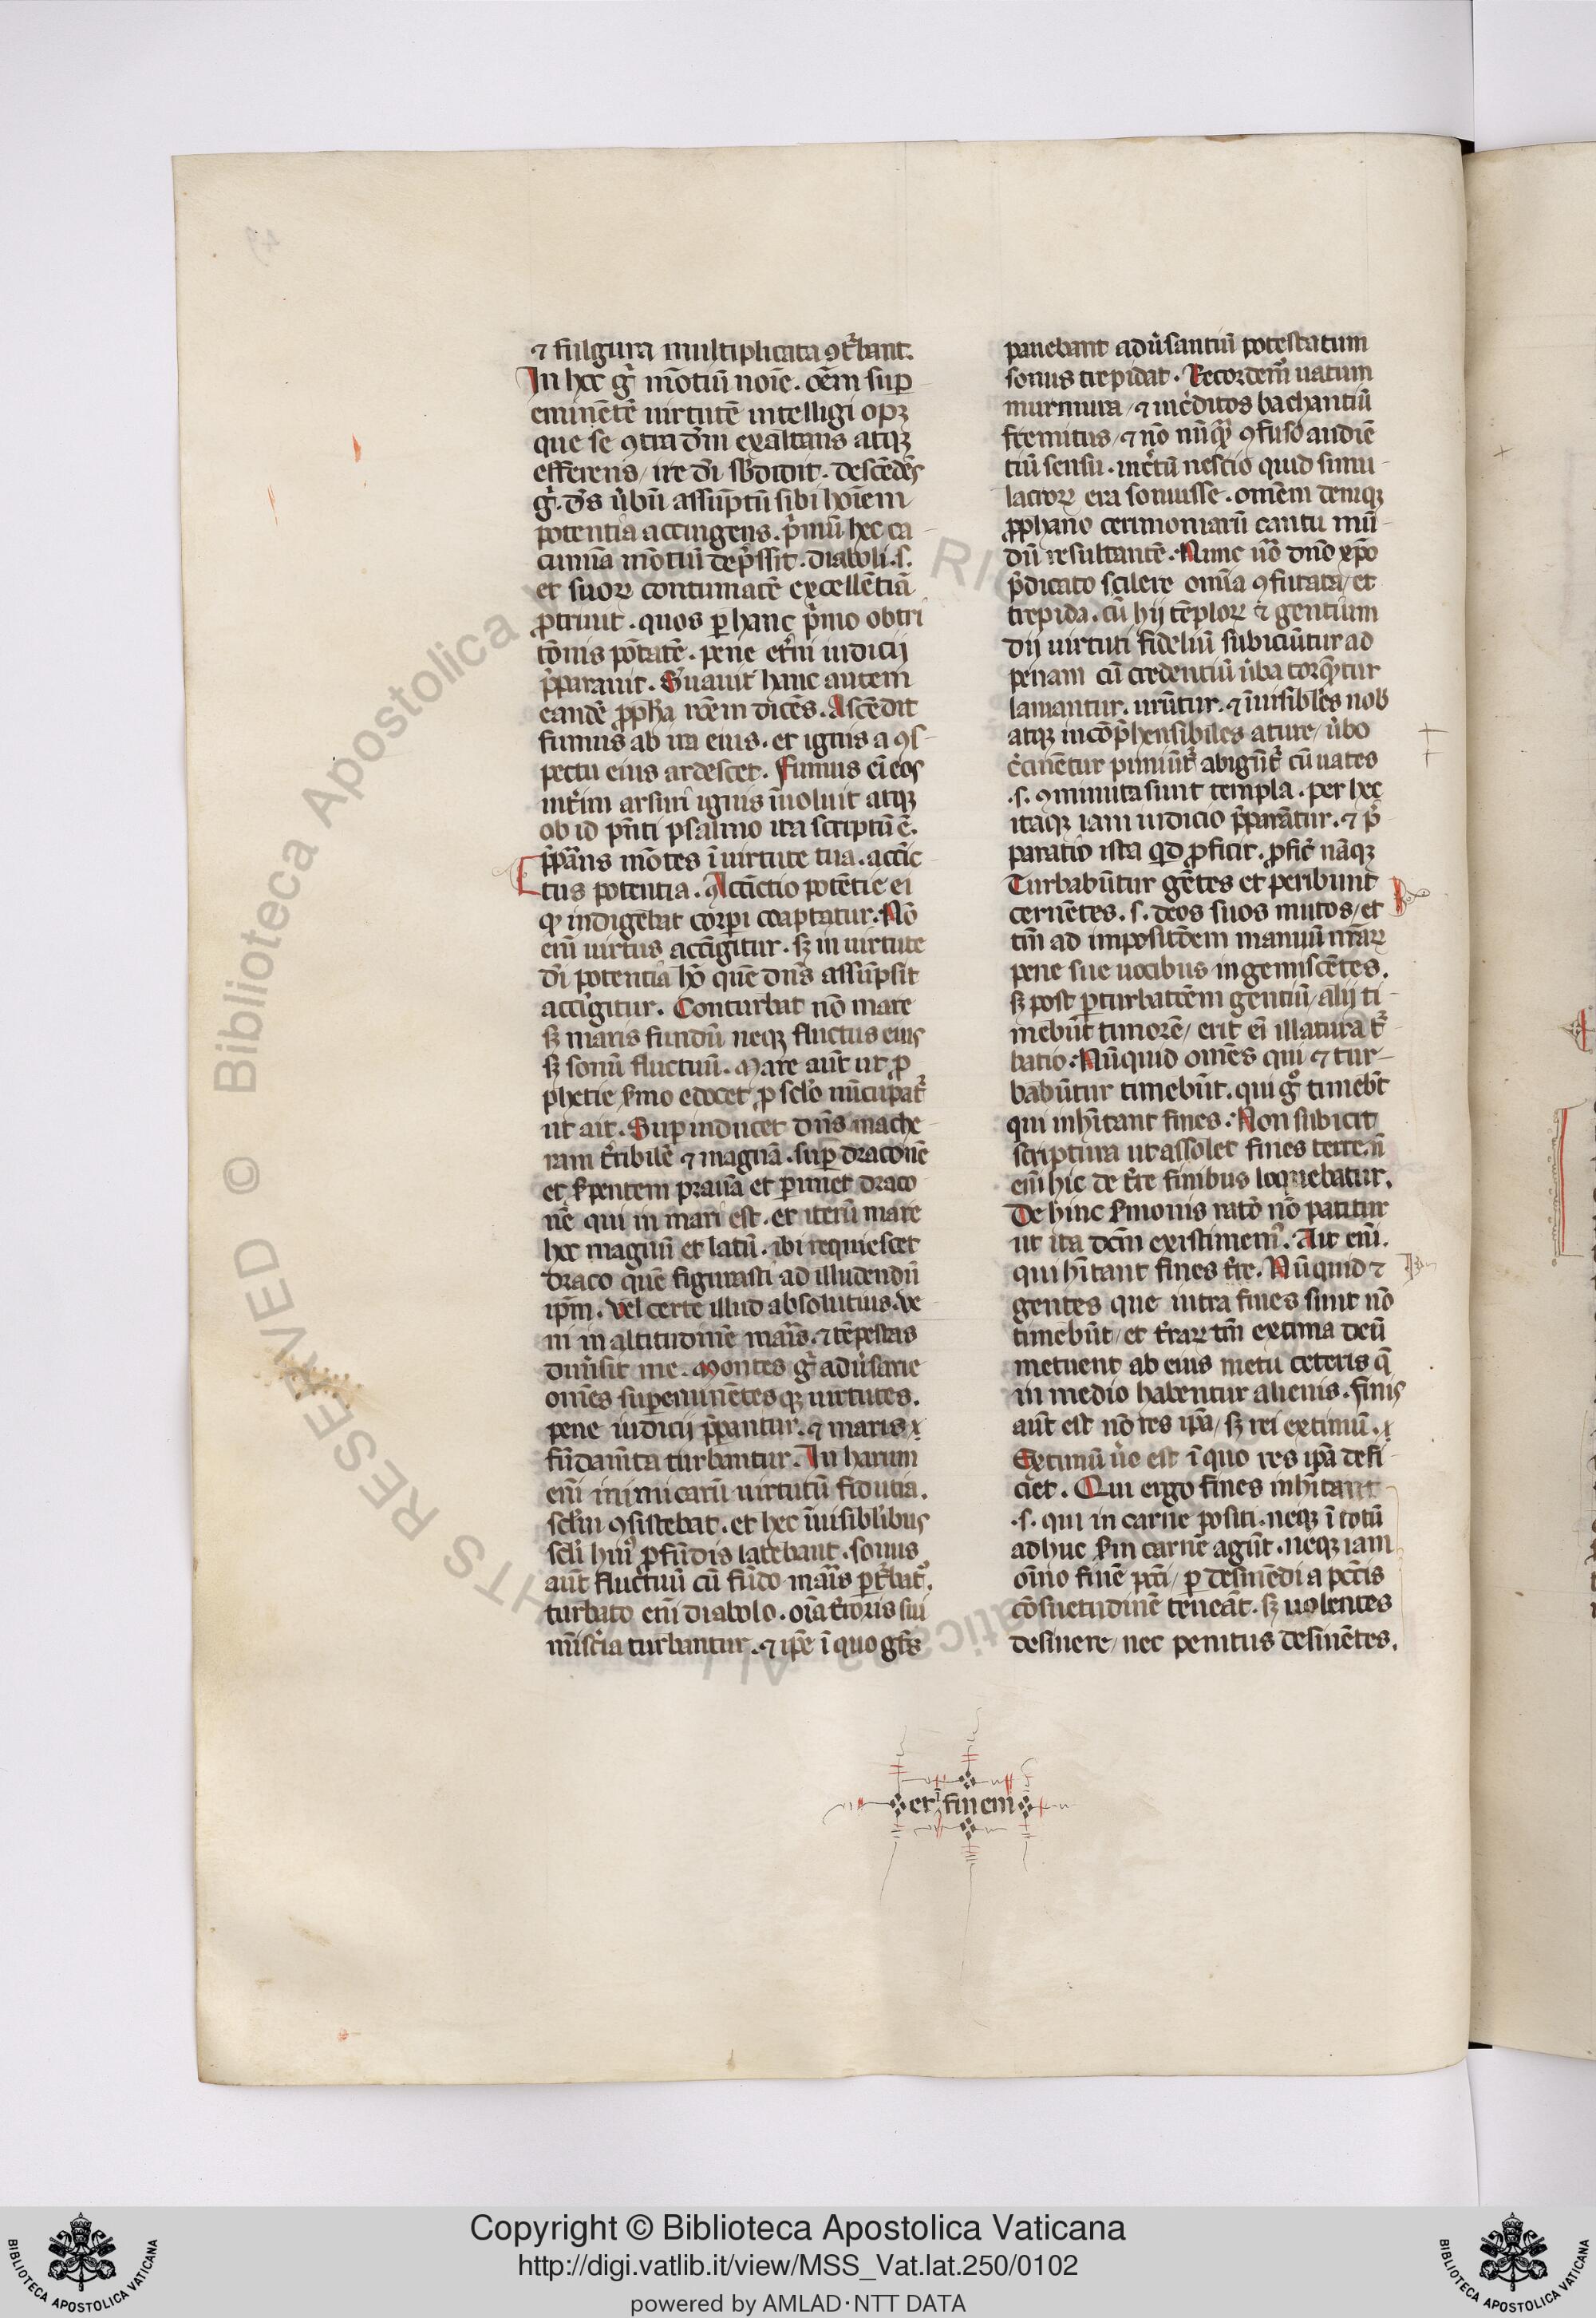 ⁊ fulgura multiplicata ꝯtˀbant.
In hec gͥ mōtiū noīe. oēm sup
eminētē uirtutē intelligi opꝫ
que se ꝯtra dm̄ exaltans atqꝫ
efferens/ ire dī sb̄didit. descēdēs
gͥ. ds̄ u̍bū assūptū sibi hoīem
potentia accingens. pͥmū hec ca-
cumīa mōtiū dep̄ssit. diaboli .s.
et suoꝝ contumacē excellētiā
ꝓtriuit. quos ꝑ hanc pͥmo obtri
tōnis pōtatē. pene et̍ni iudicij
p̄parauit. S̍uauit hanc autem
eandē ꝓph̄a rōem dicēs. Ascēdit
fumus ab ira eius. et ignis a ꝯs-
pectu eius ardescet. Fumus ei̅ eos
int̍im arsuri ignis īuoluit atqꝫ
ob id pn̄ti psalmo ita scriptū ē.
p̄pāns mōtes ī uirtute tua. accīc
tus potentia. Accīctio potētie ei
qͥ indigebat corꝑi coaptatur. Nō
enī uirtus accīgitur. sꝫ in uirtute
dī potentia hō quē dn̄s assūpsit
accīgitur. Conturbat nō mare
sꝫ maris fundū neqꝫ fluctus eius
sꝫ sonū fluctuū. Mare aūt ut ꝓ
phetie s̍mo edocet ꝓ scl̄o nūcupatˀ
ut ait. Suꝑ inducet dn̄s mache-
ram t̍ribilē ⁊ magnā. suꝑ draconē
et s̍pentem prauā et ꝑimet draco
nē qui in mari est. et iterū mare
hec magnū et latū. ibi requiescet
draco quē figurasti ad illudendū
ip̄m. Vel certe illud absolutius. Ve
ni in altitudinē maīs. ⁊ tēpestas
dim̍sit me. Montes gͥ adu̍sarie
om̄es suꝑeminētes qꝫ uirtutes.
pene iudicij p̄pantur. ⁊ maris
fūdam̄ta turbantur. In harum
enī inimicarū uirtutū fiducia.
scl̄m ꝯsistebat. et hec īuisiblibus
scl̄i huiꝰ ꝓfūdis latebant. sonus
aūt fluctuū cū fūdo maīs ꝑt̍batꝰ.
turbato enī diabolo. oīa t̍roris sui
mīst̍ia turbantur. ⁊ ip̄e ī quo gt̄s
panebant adu̍santiū potestatum
sonus trepidat. Recordemꝰ uatum
murmura/ ⁊ īcēditos bachantiū
fremitus/ ⁊ nō nūqͣ ꝯfuso audiē
tiū sensu. inc̍tū nescio quid simu-
lacroꝝ era sonuisse. omēm deniqꝫ
ꝓphano cerimoniarū cantu mū-
dū resultantē. Nunc u̍o dn̄o xp̄o
p̄dicato scilere om̄ia ꝯfutata/ et
trepida. cū hij tēploꝝ ⁊ gentium
dij uirtuti fideliū subiciūtur ad
penam cū credentiū u̍ba torqͤtur
laniantur. urūtur. ⁊ īuisibiles nob̄
atqꝫ incōp̄hensibiles ature/ u̍bo
c̍cinētur puniūtˀ abigūtˀ cū uates
.s. ꝯminuta sunt templa. per hec
itaqꝫ iam iudicio p̄parātur. ⁊ p̄
paratio ista qd ꝓficit. ꝓfic̍ nāqꝫ
Turbabūtur gētes et peribunt
cernētes. s. deos suos mutos/ et
tm̄ ad impositōem manuū nr̄aꝝ
pene sue uocibus ingemiscētes.
sꝫ post ꝑturbatōem gentiū/ alij ti-
mebūt timorē/ erit ei̅ illatura tˀ
batio. Nūquid omēs qui ⁊ tur-
babūtur timebūt. qui gͦ timeb̄t
qui inh̄itant fines. Non subicit
scriptura ut assolet fines terre. n̄
enī hic de t̍re finibus loquebatur.
De hinc s̍monis ratō nō patitur
ut ita dcm̄ existimemꝰ. Ait enī.
qui h̄itant fines t̍re. Nūquid ⁊
gentes que intra fines sunt nō
timebūt/ et t̍raꝝ tm̄ extima deū
metuent ab eius metu ceteris q̄
in medio habentur alienis. finis
aūt est nō res ip̄a/ sꝫ rei extimū.
Extimū u̍o est ī quo res ip̄a defi-
ciet. Qui ergo fines inh̄itant
.s. qui in carne positi. neqꝫ ī totū
adhuc s̍m carnē agūt. neqꝫ iam
oīno finē pcc̄i/ ꝑ desinēdi a pcc̄is
cōsuetudinē teneāt. sꝫ uolentes
desinere/ nec penitus desinētes.
et ī finem
Copyright © Biblioteca Apostolica Vaticana
http://digi.vatlib.it/view/MSS_Vat.lat.250/0102
powered by AMLAD·NTT DATA
BIBLIOTECA APOSTOLICA VATICANA
BIBLIOTECA APOSTOLICA VATICANA